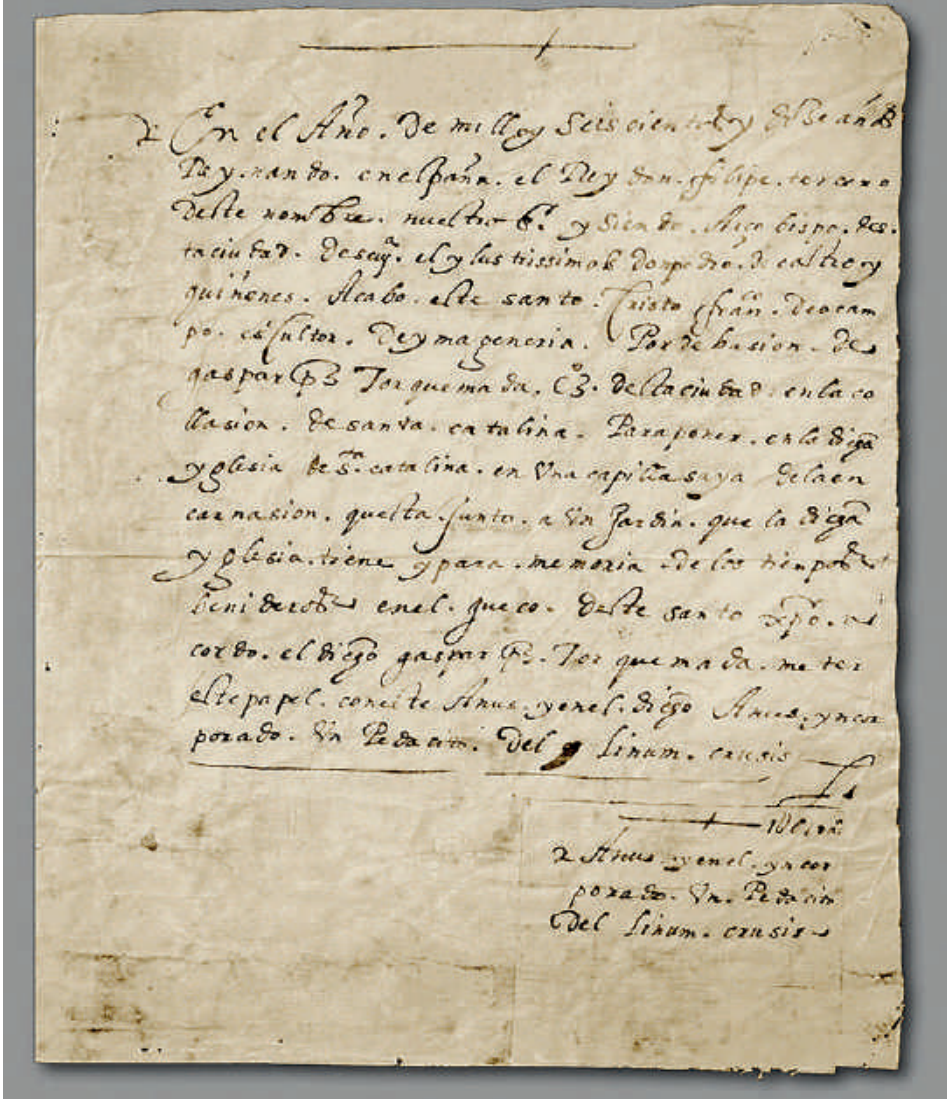 En el Año. De mill y Seis cientos y dose años
Reynando. en españa. el Rey don. filipe. tercero
deste nombre. nuestro s.r y siendo. Arço bispo. des.
ta ciudad. de seuya. el ylustrissimo s don pedro. de castro y
quiñones. Acabo. este santo. Cristo fran.co de ocam
po. escultor. De ymageneria. Por debosion. de
gaspar p.z Torquemada. v.o desta ciudad. en la co
llasion. de santa. catalina. Para poner. en la dicga
yglesia de s.ta catalina. en Una capilla suya de la en
carnasion. questa. junto. a Un Jardin. que la dicga
yglesia. tiene y para. memoria. de los tienpos
benideros en el. gueco. deste santo xpo. a
cordo. el dicgo gaspar p.z Torquemada. meter
este papel. con este Anus. y en el. dicgo Anus. yncor
porado. Un Pedacito. Del linum. crusis
Anus y en el. yncor
porado. Un. Pedacito
Del linum. crusis